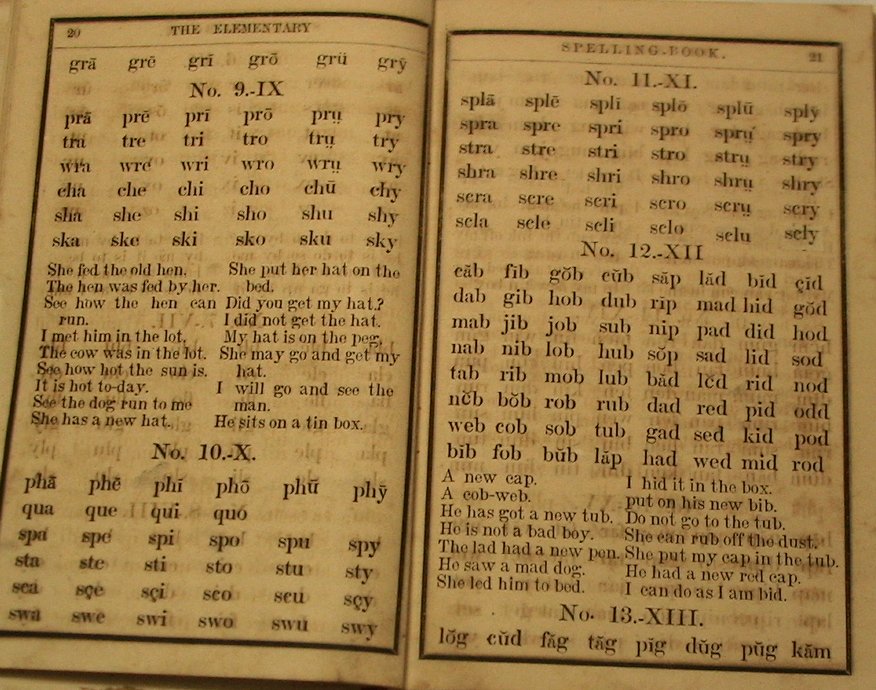 20 THE ELEMENTARY
grā grē grī grō grü grȳ
No. 9.-IX
prā prē prī prō prṳ pry
tra tre tri tro trṳ try
wra wre wri wro wrṳ wry
cha che chi cho chū chy
sha she shi sho shu shy
ska ske ski sko sku sky
She fed the old hen.
The hen was fed by her.
See how the hen can
run.
I met him in the lot.
The cow was in the lot.
See how hot the sun is.
It is hot to-day.
See the dog run to me
She has a new hat.
She put her hat on the
bed.
Did you get my hat?
I did not get the hat.
My hat is on the peg.
She may go and get my
hat.
I will go and see the
man.
He sits on a tin box.
No. 10.-X.
phā phē phī phō phū phȳ
qua que qui quo
spa spe spi spo spu spy
sta ste sti sto stu sty
sca sçe sçi sco scu sçy
swa swe swi swo swu swy
SPELLING-BOOK. 21
No. 11.-XI.
splā splē splī splō splū splȳ
spra spre spri spro sprṳ spry
stra stre stri stro strṳ stry
shra shre shri shro shrṳ shry
scra scre scri scro scrṳ scry
scla scle scli sclo sclu scly
No. 12.-XII
căb fĭb gŏb cŭb săp lăd bĭd çĭd
dab gib hob dub rip mad hid gŏd
mab jib job sub nip pad did hod
nab nib lob hub sŏp sad lid sod
tab rib mob lub băd lĕd rid nod
nĕb bŏb rob rub dad red pid odd
web cob sob tub gad sed kid pod
bib fob bŭb lăp had wed mid rod
A new cap.
A cob-web.
He has got a new tub.
He is not a bad boy.
The lad had a new pen.
He saw a mad dog.
She led him to bed.
I hid it in the box.
put on his new bib.
Do not go to the tub.
She can rub off the dust.
She put my cap in the tub.
He had a new red cap.
I can do as I am bid.
No. 13.-XIII.
lŏg cŭd făg tăg pĭg dŭg pŭg kăm